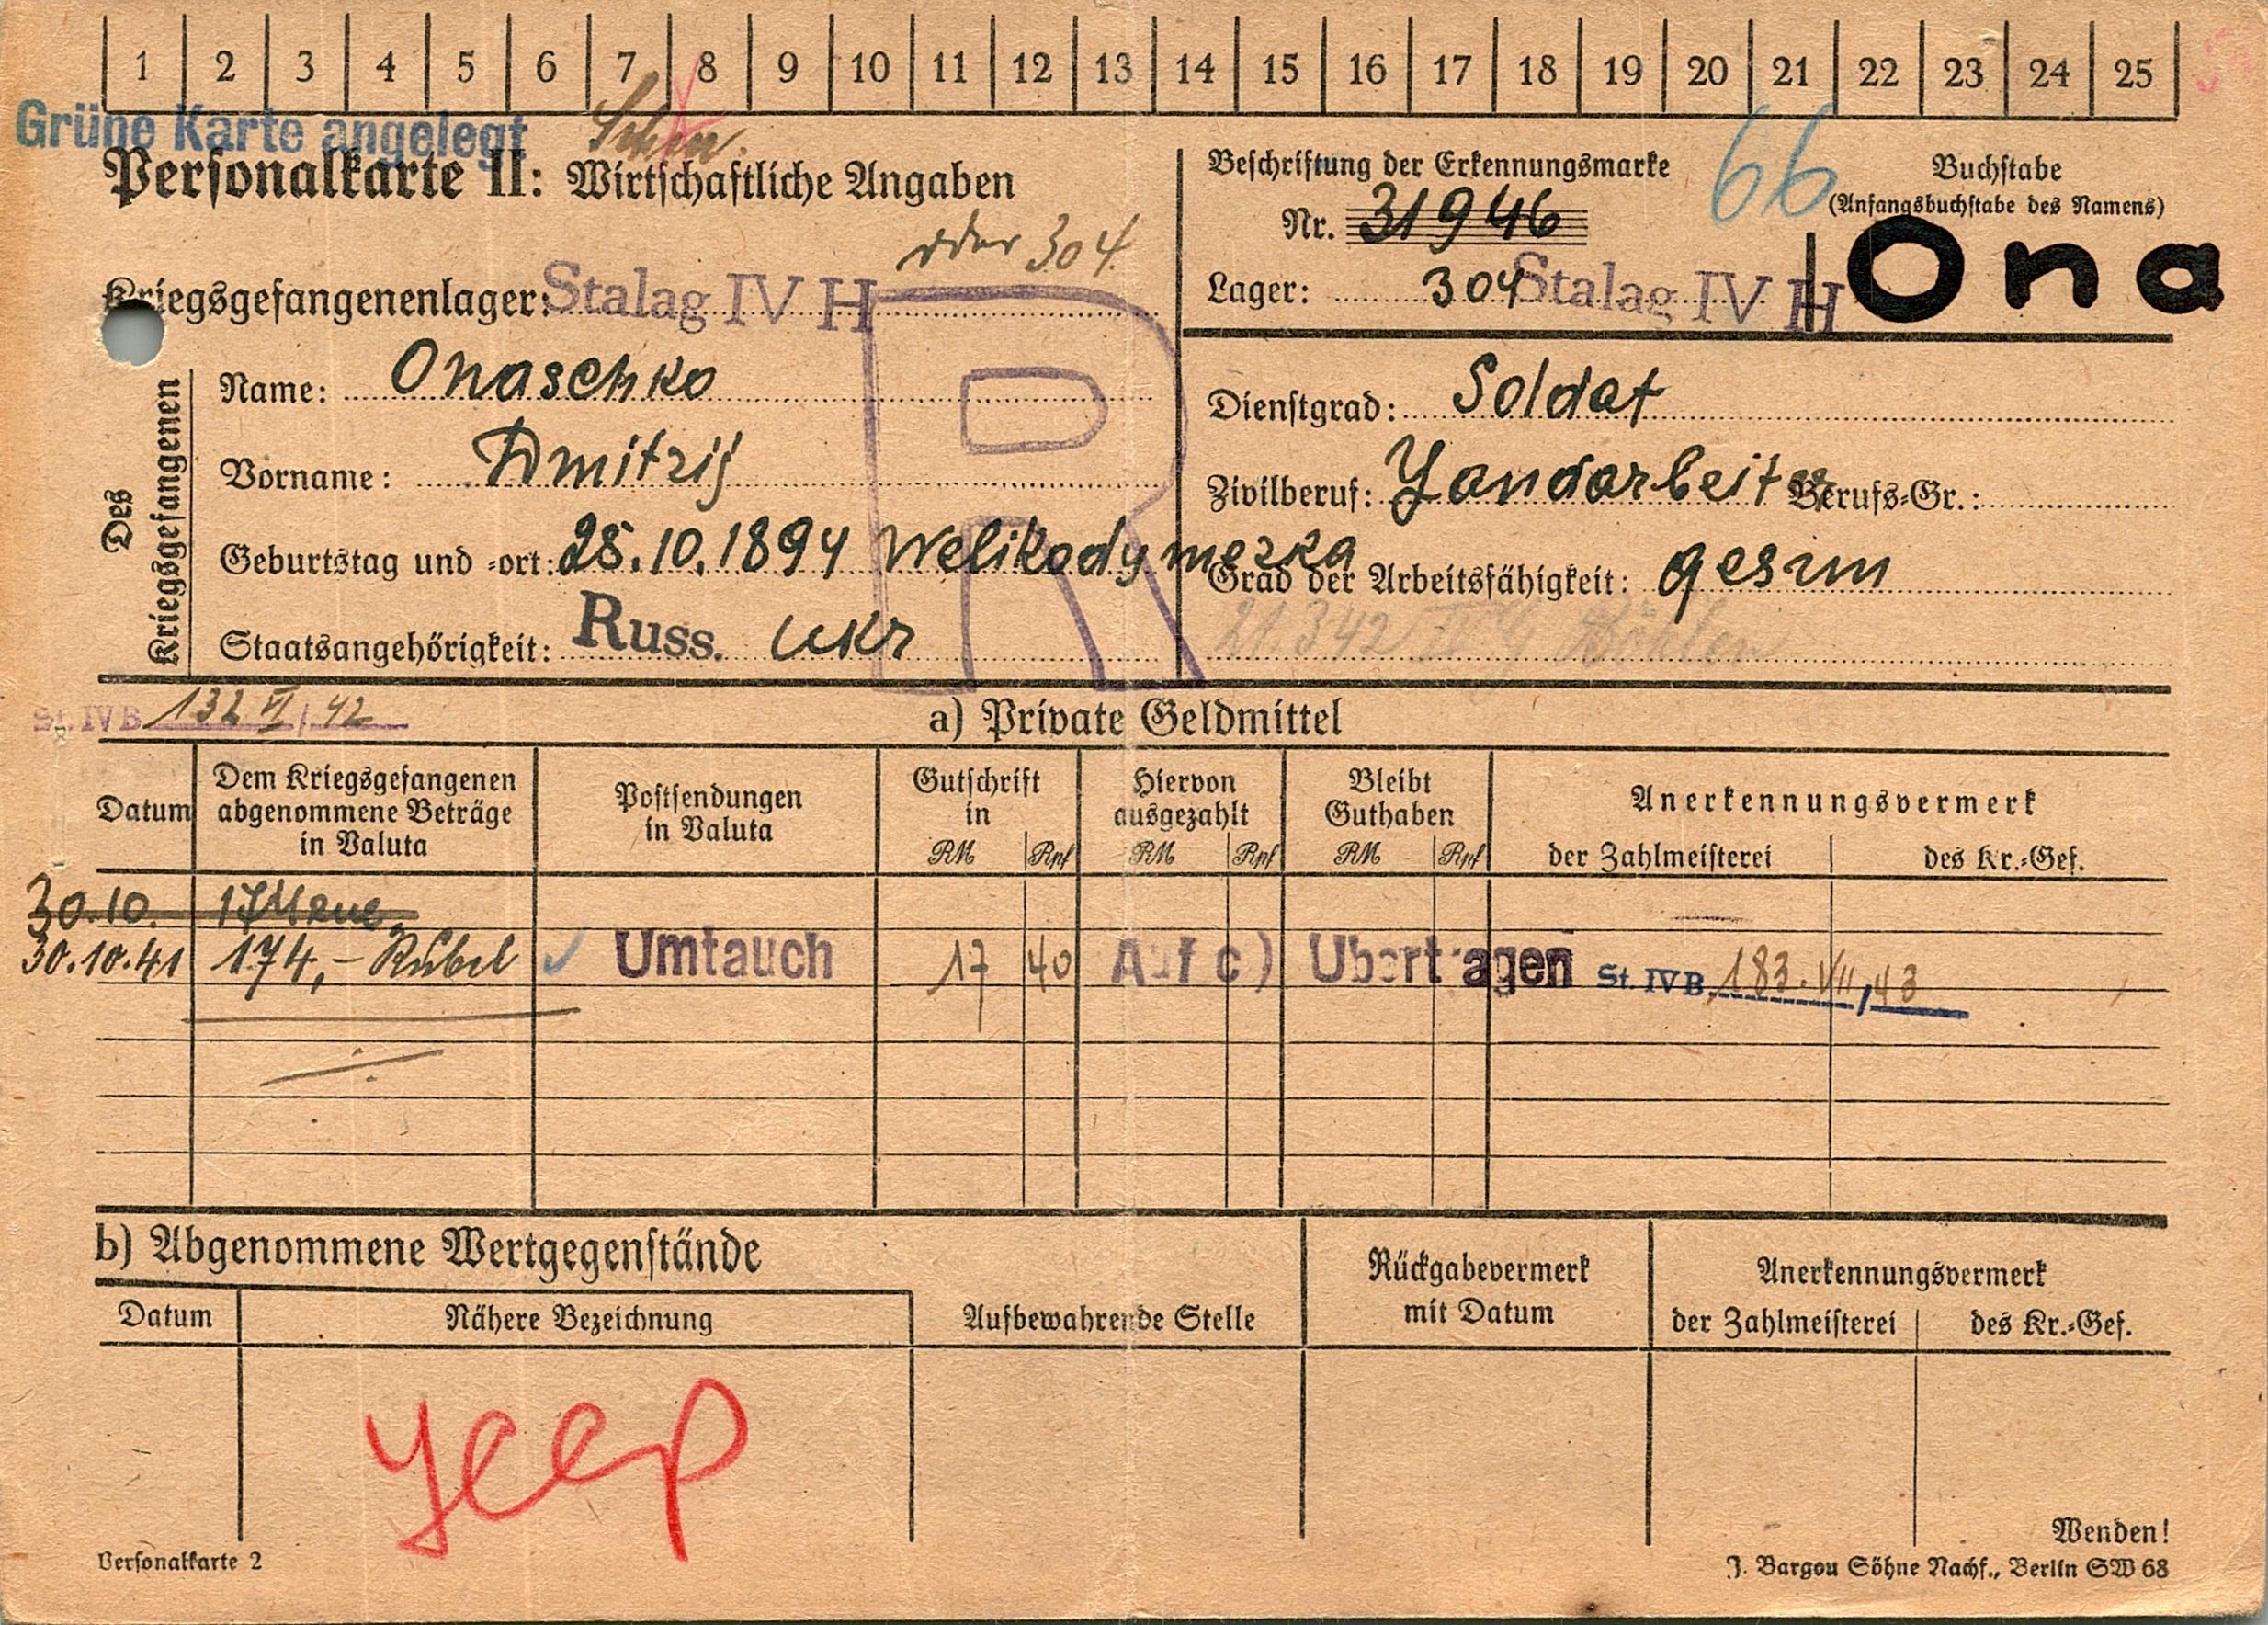 1 2 3 4 5 6 7 8 9 10 11 12 13 14 15 16 17 18 19 20 21 22 23 24 25
Grüne Karte angelegt
Personalkarte II: Wirtschaftliche Angaben
Beschriftung der Erkennungsmarke
66
Buchstabe
(Anfangsbuchstabe des Namens)
Nr. 31946
Ona
oder 304.
Kriegsgefangenenlager: Stalag IV H
Lager: 304 Stalag IV H
R
Des Kriegsgefangenen
Name: Onaschko
Dienstgrad: Soldat
Vorname: Dmitrij
Zivilberuf: Landarbeiter Berufs-Gr.:
Geburtstag und -ort: 28.10.1894 Welikodymerka
Grad der Arbeitsfähigkeit: gesun
Staatsangehörigkeit: Russ. Ukr
21.342
St. IV B 132 VI / 42
a) Private Geldmittel
Datum
Dem Kriegsgefangenen abgenommene Beträge in Valuta
Postsendungen in Valuta
Gutschrift in
RM Rpf
Hiervon ausgezahlt
RM Rpf
Bleibt Guthaben
RM Rpf
Anerkennungsvermerk
der Zahlmeisterei
des Kr.-Gef.
30.10.
30.10.41 174,- Rubel Umtauch 17 40 Auf c) Übertragen St. IV B 183. VII / 43
b) Abgenommene Wertgegenstände
Datum
Nähere Bezeichnung
Aufbewahrende Stelle
Rückgabevermerk mit Datum
Anerkennungsvermerk
der Zahlmeisterei
des Kr.-Gef.
Wenden!
Personalkarte 2
J. Bargou Söhne Nachf., Berlin SW 68